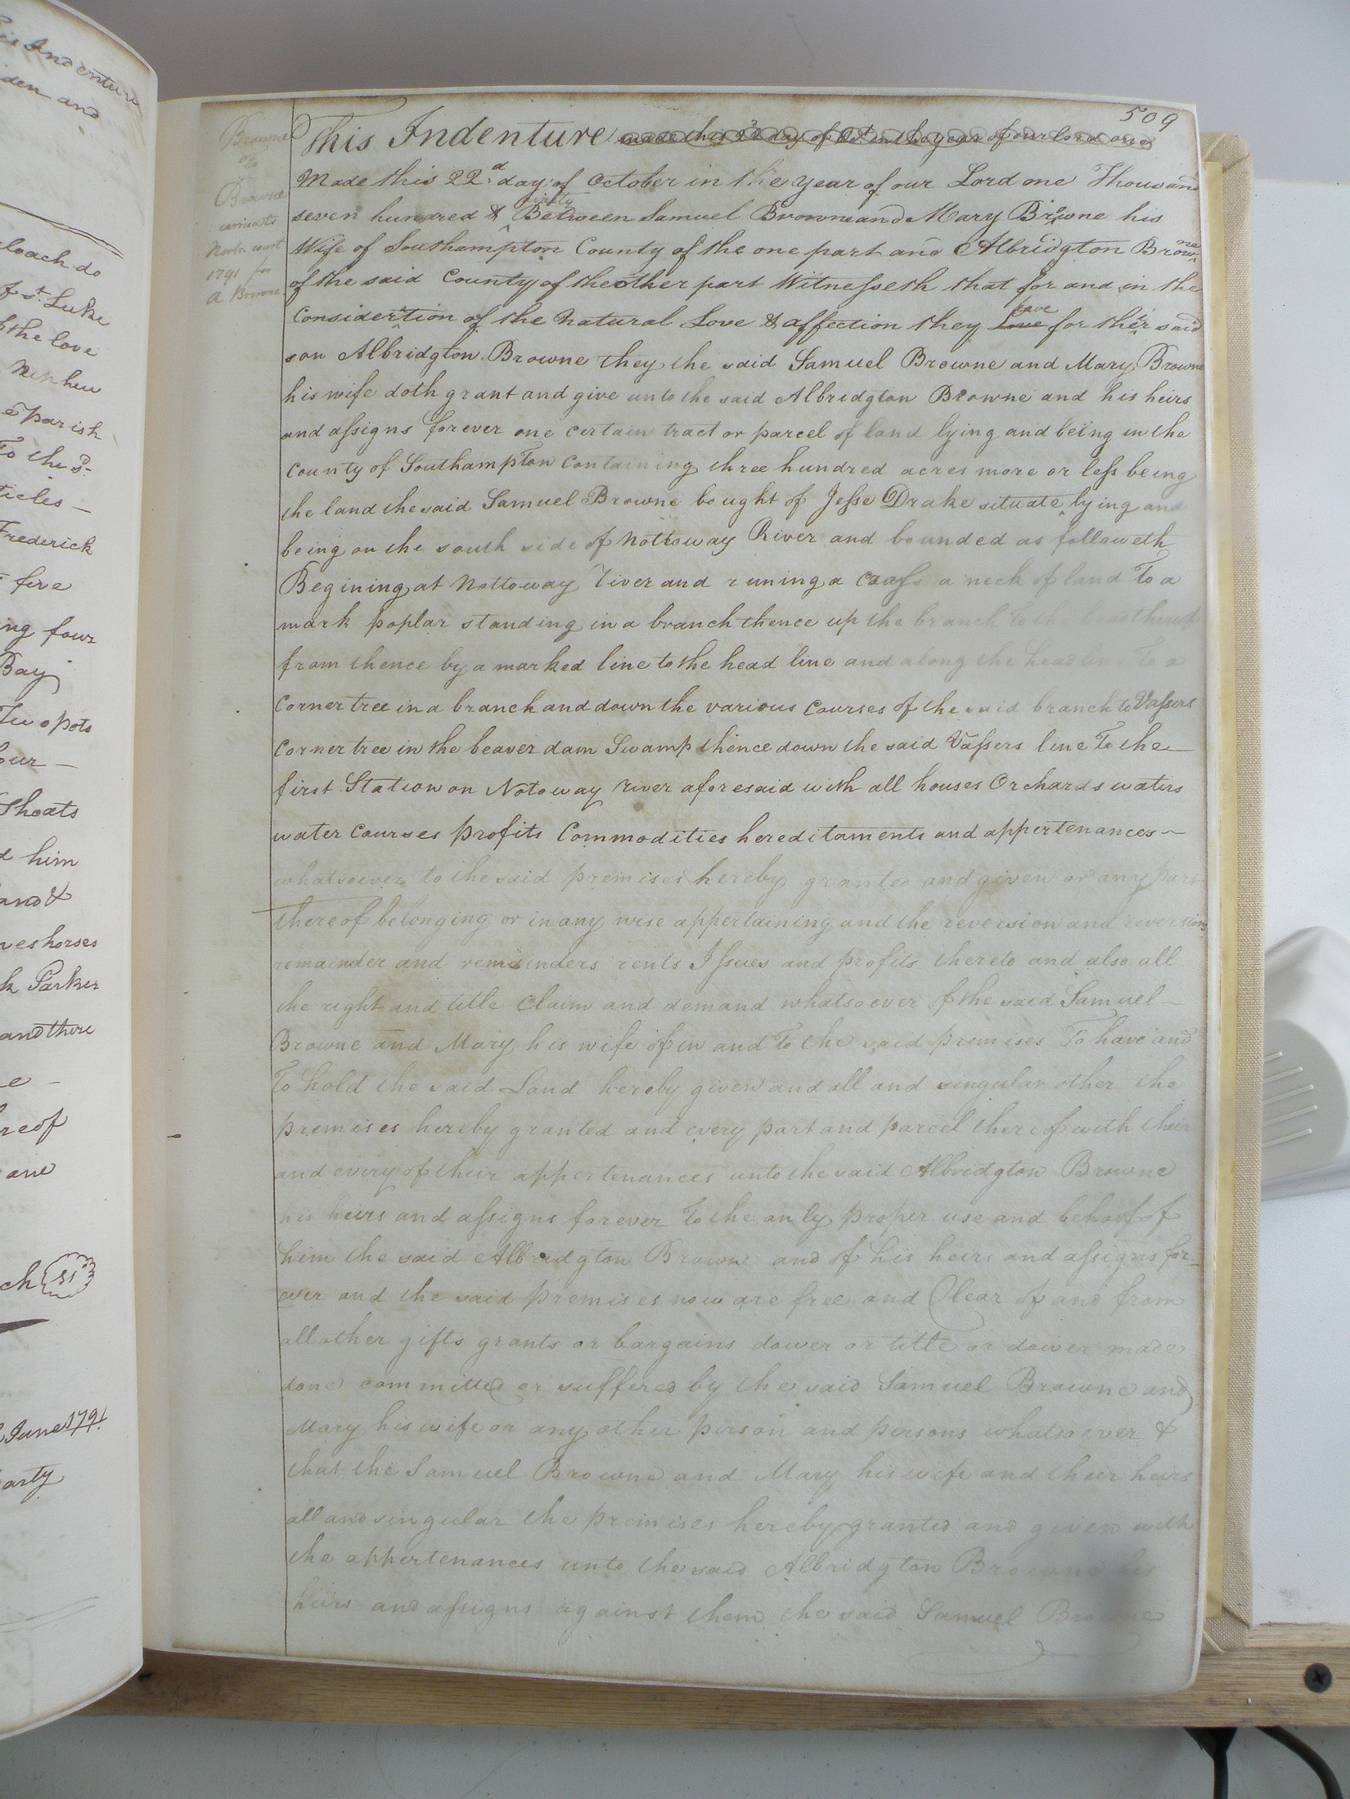 509
This Indenture made this 22 day of Oct in the year of our Lord one
Made this 22d day of October in the year of our Lord one Thousand
ninety
seven hundred & Between Samuel Browne and Mary Browne his
Wife of Southampton County of the one part and Albridgton Browne
of the said County of the other part Witnesseth that for and in the
have
Considertion of the Natural Love & affection they Love for ther said
son Albridgton Browne they the said Samuel Browne and Mary Browne
his wife doth grant and give unto the said Albridgton Browne and his heirs
and assigns forever one certain tract or parcel of land lying and being in the
County of Southampton Containing three hundred acres more or less being
the land the said Samuel Browne bought of Jesse Drake situate lying and
being on the south side of Nottoway River and bounded as followeth
Begining at Nottoway River and runing a Crass a neck of land To a
mark poplar standing in a branch thence up the branch to the head thereof
from thence by a marked line to the head line and along the head line To a
Corner tree in a branch and down the various Courses of the said branch to Vassers
Corner tree in the beaver dam Swamp thence down the said Vassers line To the
first Station on Notoway river aforesaid with all houses Orchards waters
water Courses profits Commodities hereditaments and appertenances
whatsoever to the said premises hereby granted and given or any part
thereof belonging or in any wise appertaining and the reversion and reversions
remainder and remainders rents Issues and profits thereto and also all
the right and title Claim and demand whatsoever of the said Samuel
Browne and Mary his wife of in and To the said premises To have and
To hold the said Land hereby given and all and singular other the
premises hereby granted and every part and parcel thereof with their
and every of their appertenances unto the said Albridgton Browne
his heirs and assigns forever To the only proper use and behoof of
him the said Albridgton Browne and of his heirs and assigns for-
ever and the said premises now are free and Clear of and from
all other gifts grants or bargains dower or title or dower made
done committed or suffered by the said Samuel Browne and
Mary his wife or any other person and persons whatsoever &
that the Samuel Browne and Mary his wife and their heirs
all and singular the premises hereby granted and given with
the appertenances unto the said Albridgton Browne his
heirs and assigns against them the said Samuel Browne
Browne
to
Browne
Novr. court
1791 for
A Browne
his Indenture
and
do
of St. Luke
the love
Nephew
parish
To the sd.
ticles
Frederick
five
ing four
Bay
Two pots
our
Shoats
d him
and &
horses
k Parker
and there
reof
ch
June 1791
arty